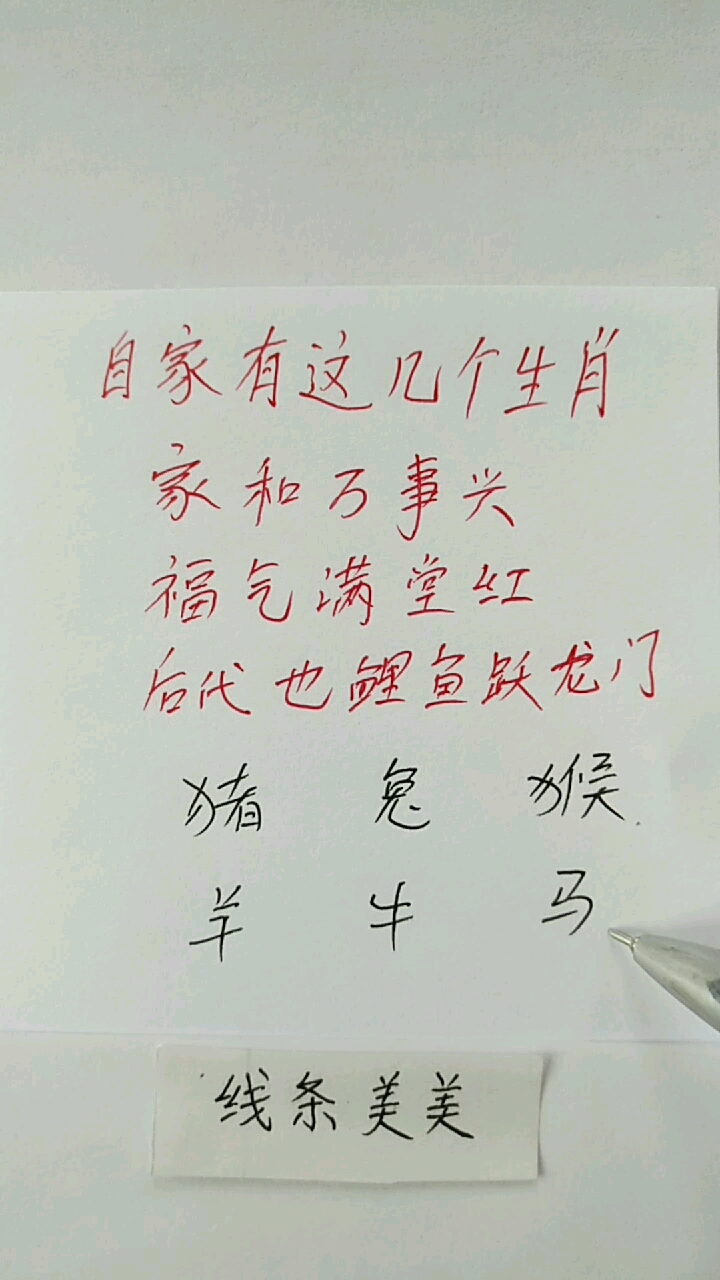 自家有这几个生肖
家和万事兴
福气满堂红
后代也鲤鱼跃龙门
猪 兔 猴
羊 牛 马
线条美美